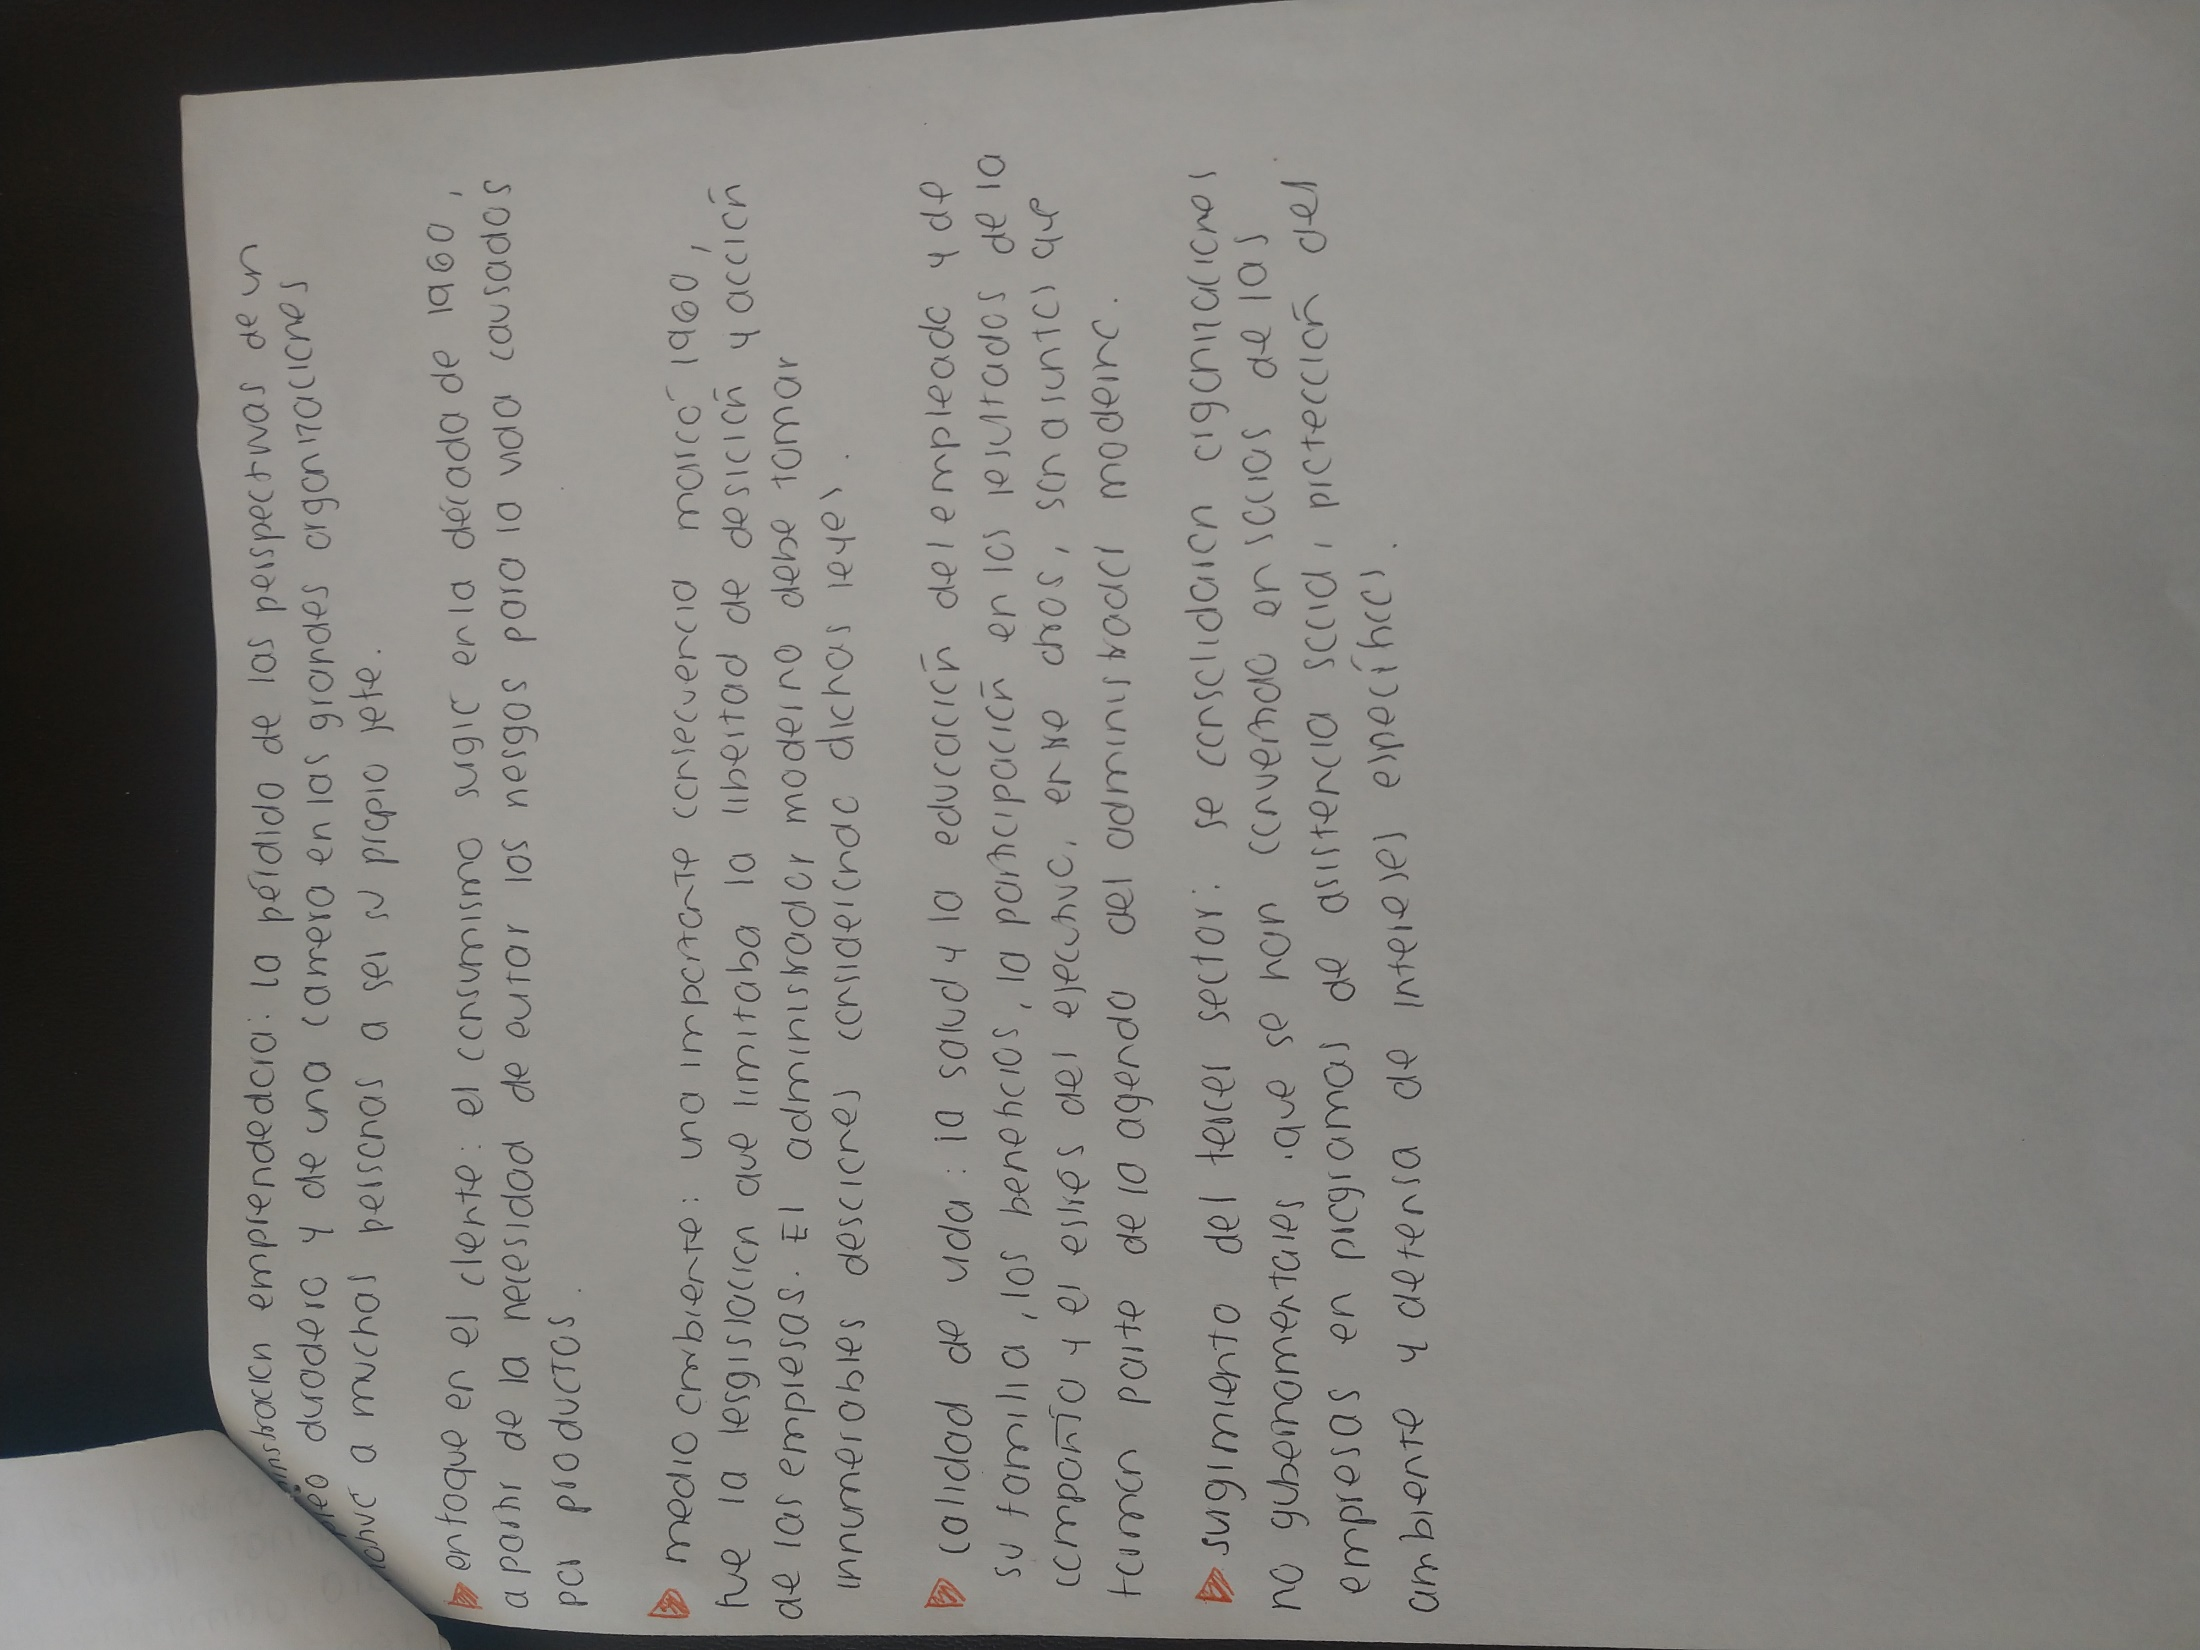 emprendedora: la pérdida de las perspectivas de un
duradero y de una carrera en las grandes organizaciones
a muchas personas a ser su propio jefe.
enfoque en el cliente: el consumismo surgió en la década de 1960,
a partir de la necesidad de evitar los riesgos para la vida causados
por productos.
medio ambiente: una importante consecuencia marcó 1960,
fue la lesgislación que limitaba la libertad de desición y acción
de las empresas. El administrador moderno debe tomar
innumerables desciones considerando dichas leyes.
calidad de vida: la salud y la educación del empleado y de
su familia, los beneficios, la participación en los resultados de la
compañía y el estrés del ejecutivo, entre otros, son asuntos que
toman parte de la agenda del administrador moderno.
surgimiento del tercer sector: se consolidaron organizaciones
no gubernamentales que se han convertido en socias de las
empresas en programas de asistencia social, protección del
ambiente y defensa de intereses específicos.